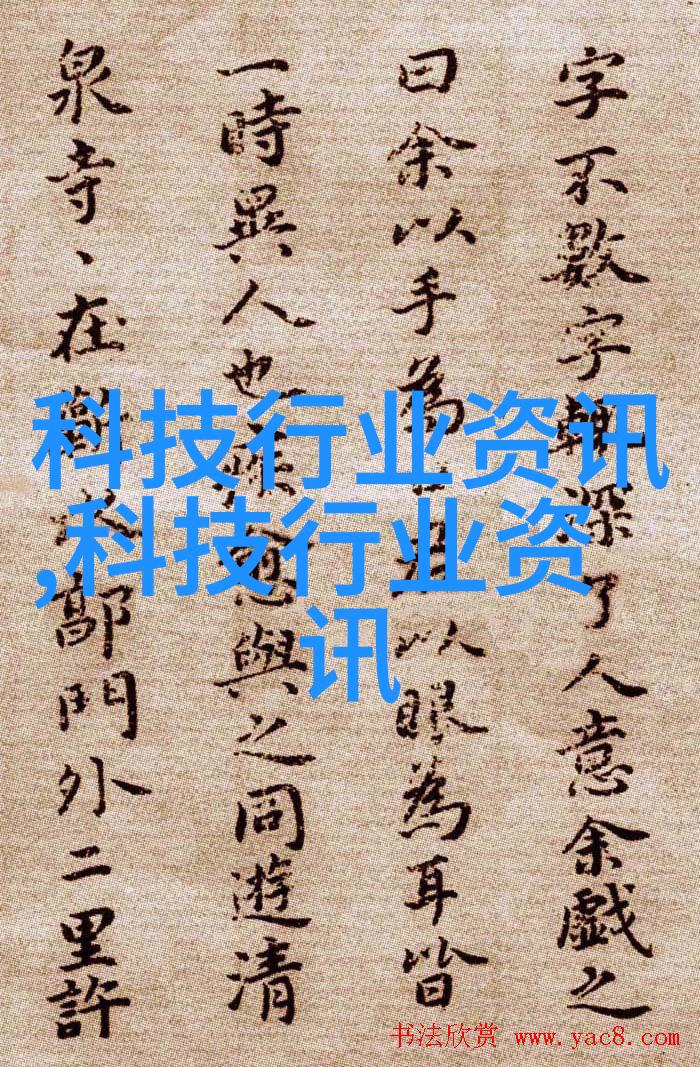 字不數字輒深了人意余戲之
曰余以手為以眼為耳皆
一時異人也疾愈與之同遊清
泉寺、在蘄水郭門外二里許
科技行业资讯
,科技行业资
讯
书法欣赏 www.yac8.com